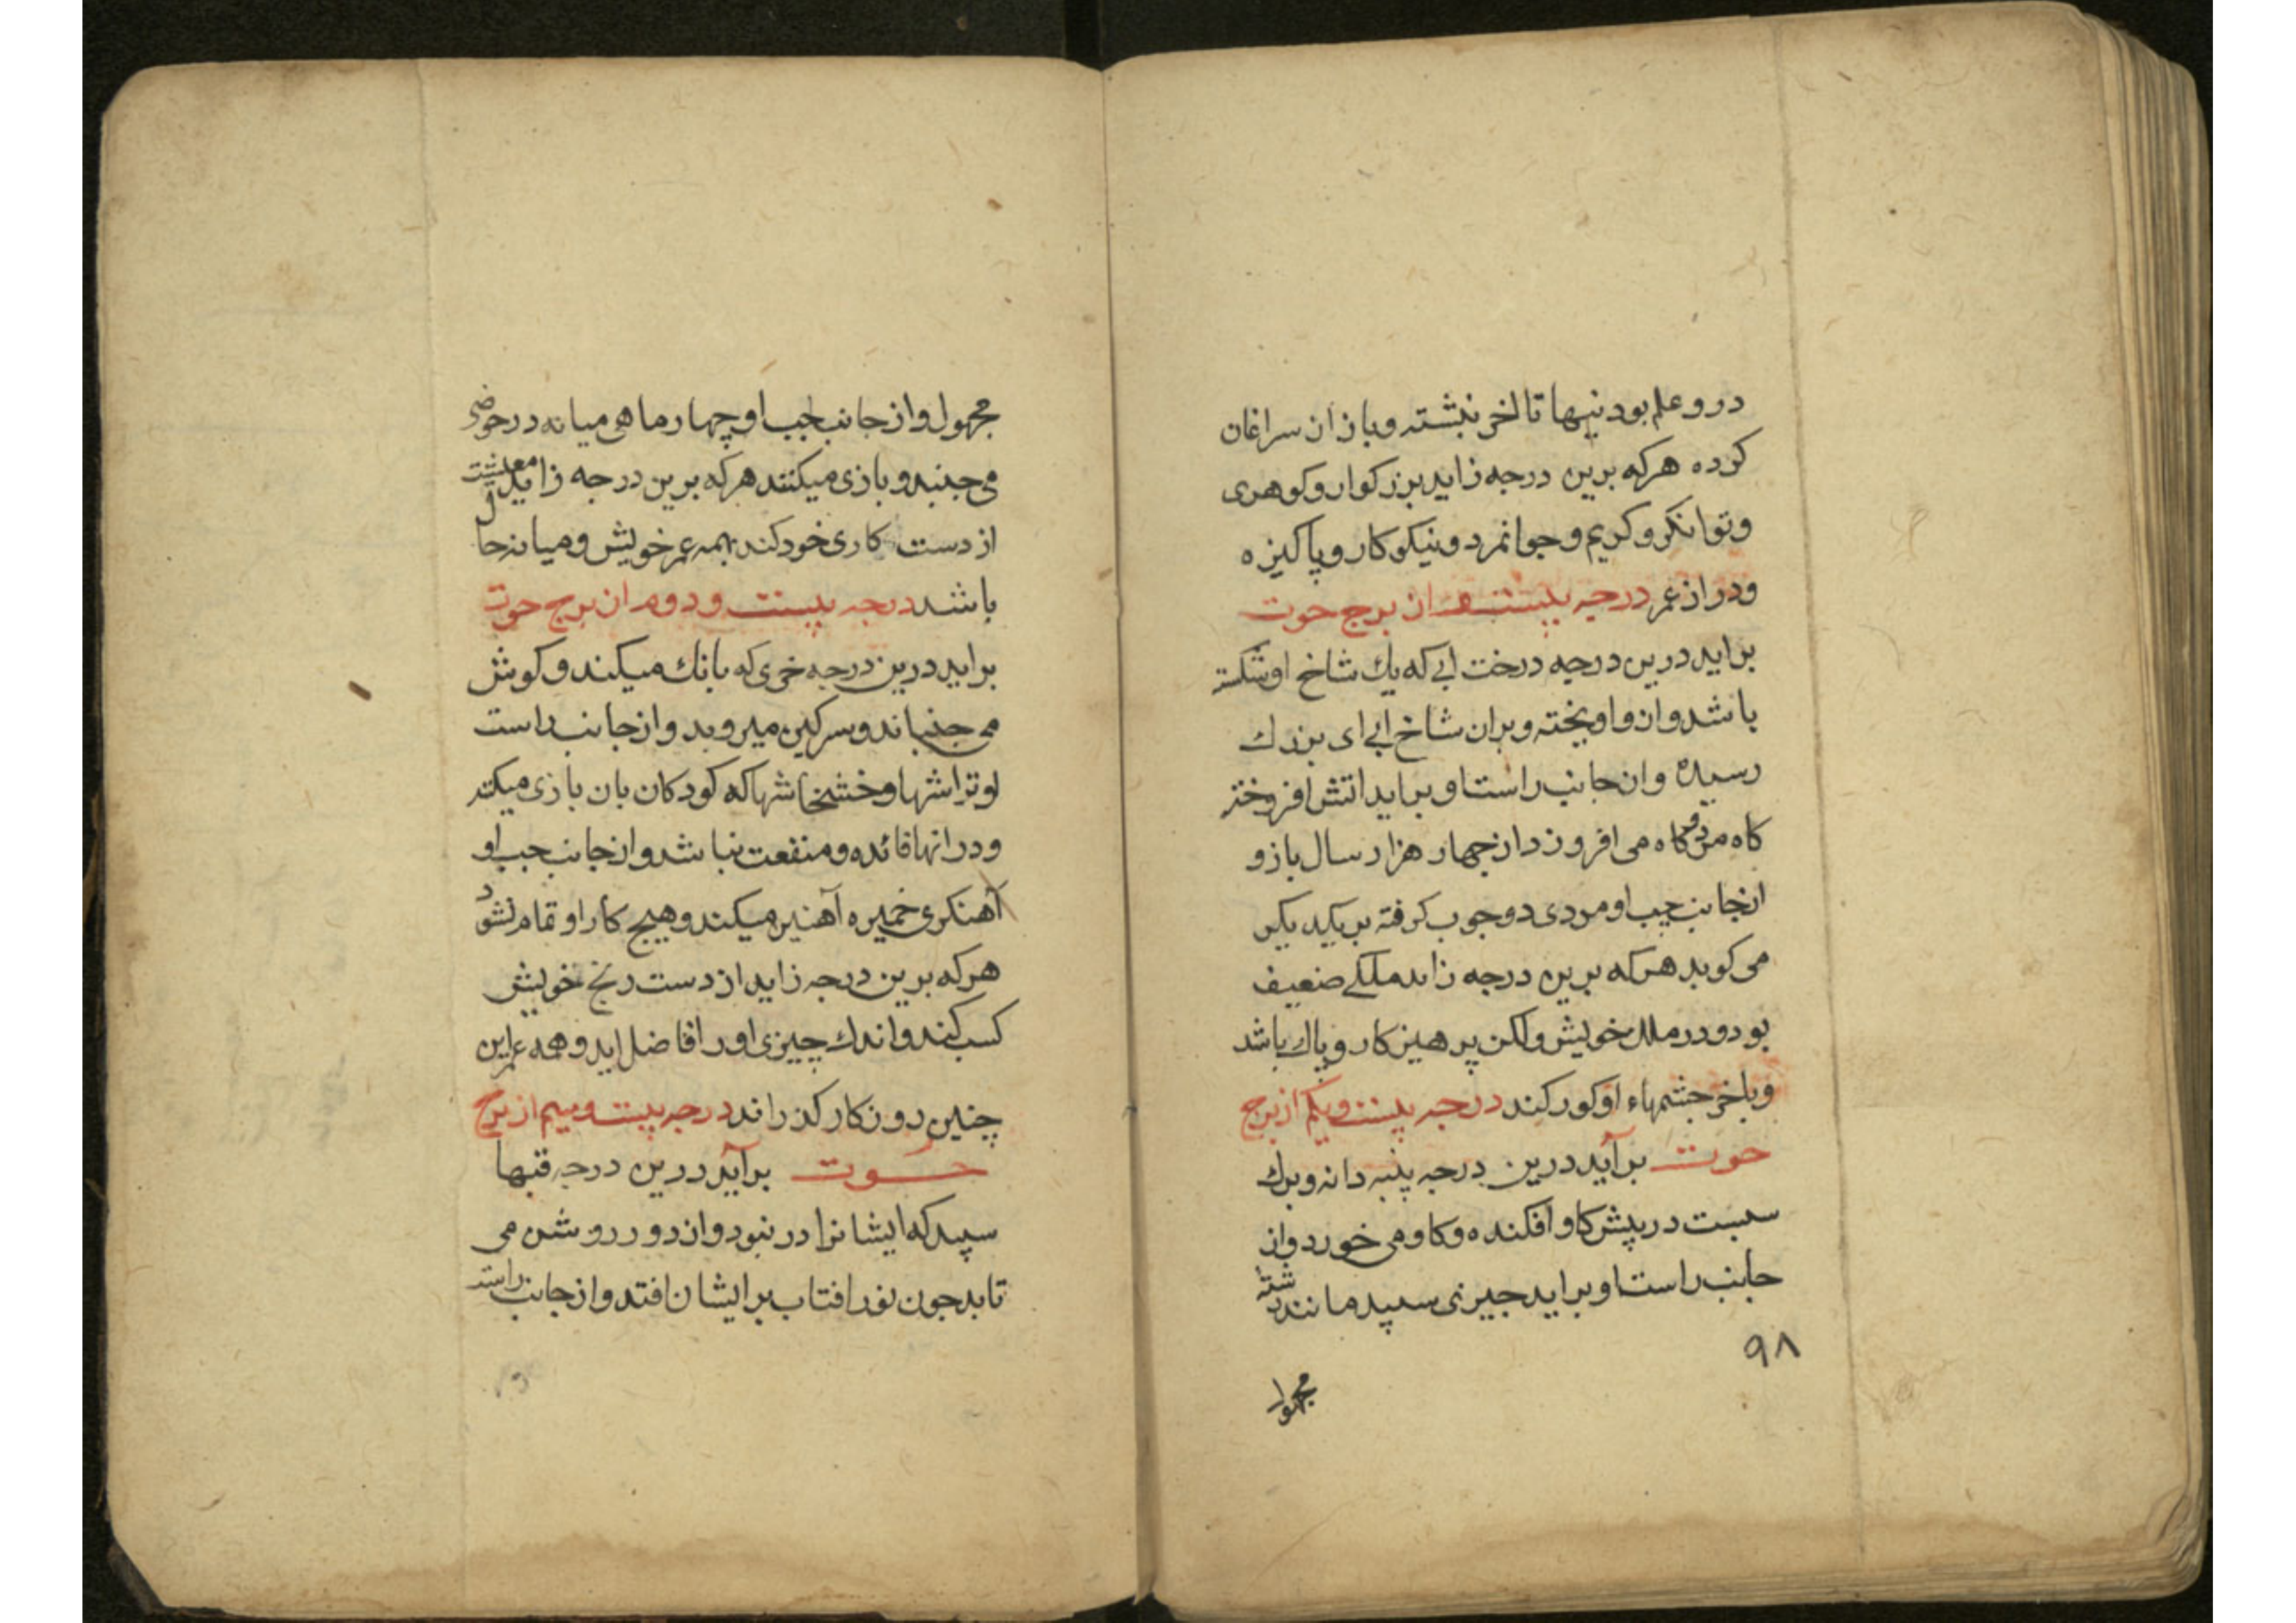 در و علم بود نیها تا لخر نبشته و باز ان سراغان
کرده هرکه برین درجه زاید بزرکوار و کوهری
و توانکر و کریم و جوانمرد و نیکو کار و پاکیزه
و دراز عمر درجه بیستم از برج حوت
براید درین درجه درخت ابی که یك شاخ او شکسته
باشد و ان واویخته و بران شاخ ابی ای بزرك
رسیده و ان جانب راست او براید اتش افروخته
کاه مرد و کاه می افروزد از جهار هزار سال باز و
ازجانب چپ او مردی دو جوب کرفته بریکدیکر
می کوبد هرکه برین درجه زاید ملکی ضعیف
بود و در ملك خویش ولکن پرهیزکار و پاك باشد
و باخر جشمهاء او کور کند درجه بیست ویکم از برج
حوت برآید درین درجه پنبه دانه و برك
سبست در پیش کاو افکنده و کاو می خورد و از
جانب راست او براید جیزی سپید مانند پشته
۹۸
مجهول
مجهول و از جانب چپ او چهار ماهی میانه در حوضی
می جنبند و بازی میکنند هرکه برین درجه زاید معیشت
از دست کاری خود کند بهمه عمر خویش و میانه حال
باشد درجه بیست و دوم از برج حوت
براید درین درجه خری که بانك میکند و کوش
می جنباند و سرکین میروبد و از جانب راست
او تراشها و خشخاشها که کودکان بان بازی میکند
و در انها فائده و منفعت نباشد و از جانب چپ او
آهنکری خمیره آهنین میکند و هیچ کار او تمام نشود
هرکه برین درجه زاید از دست رنج خویش
کسب کند و اندك چیزی اورا فاضل اید و همه عمر این
چنین روزکار کذراند درجه بیست و سیم از برج
حوت برآید درین درجه قبها
سپید که ایشانرا در نبود و از دور روشن می
تابد جون نور افتاب بر ایشان افتد و از جانب راست